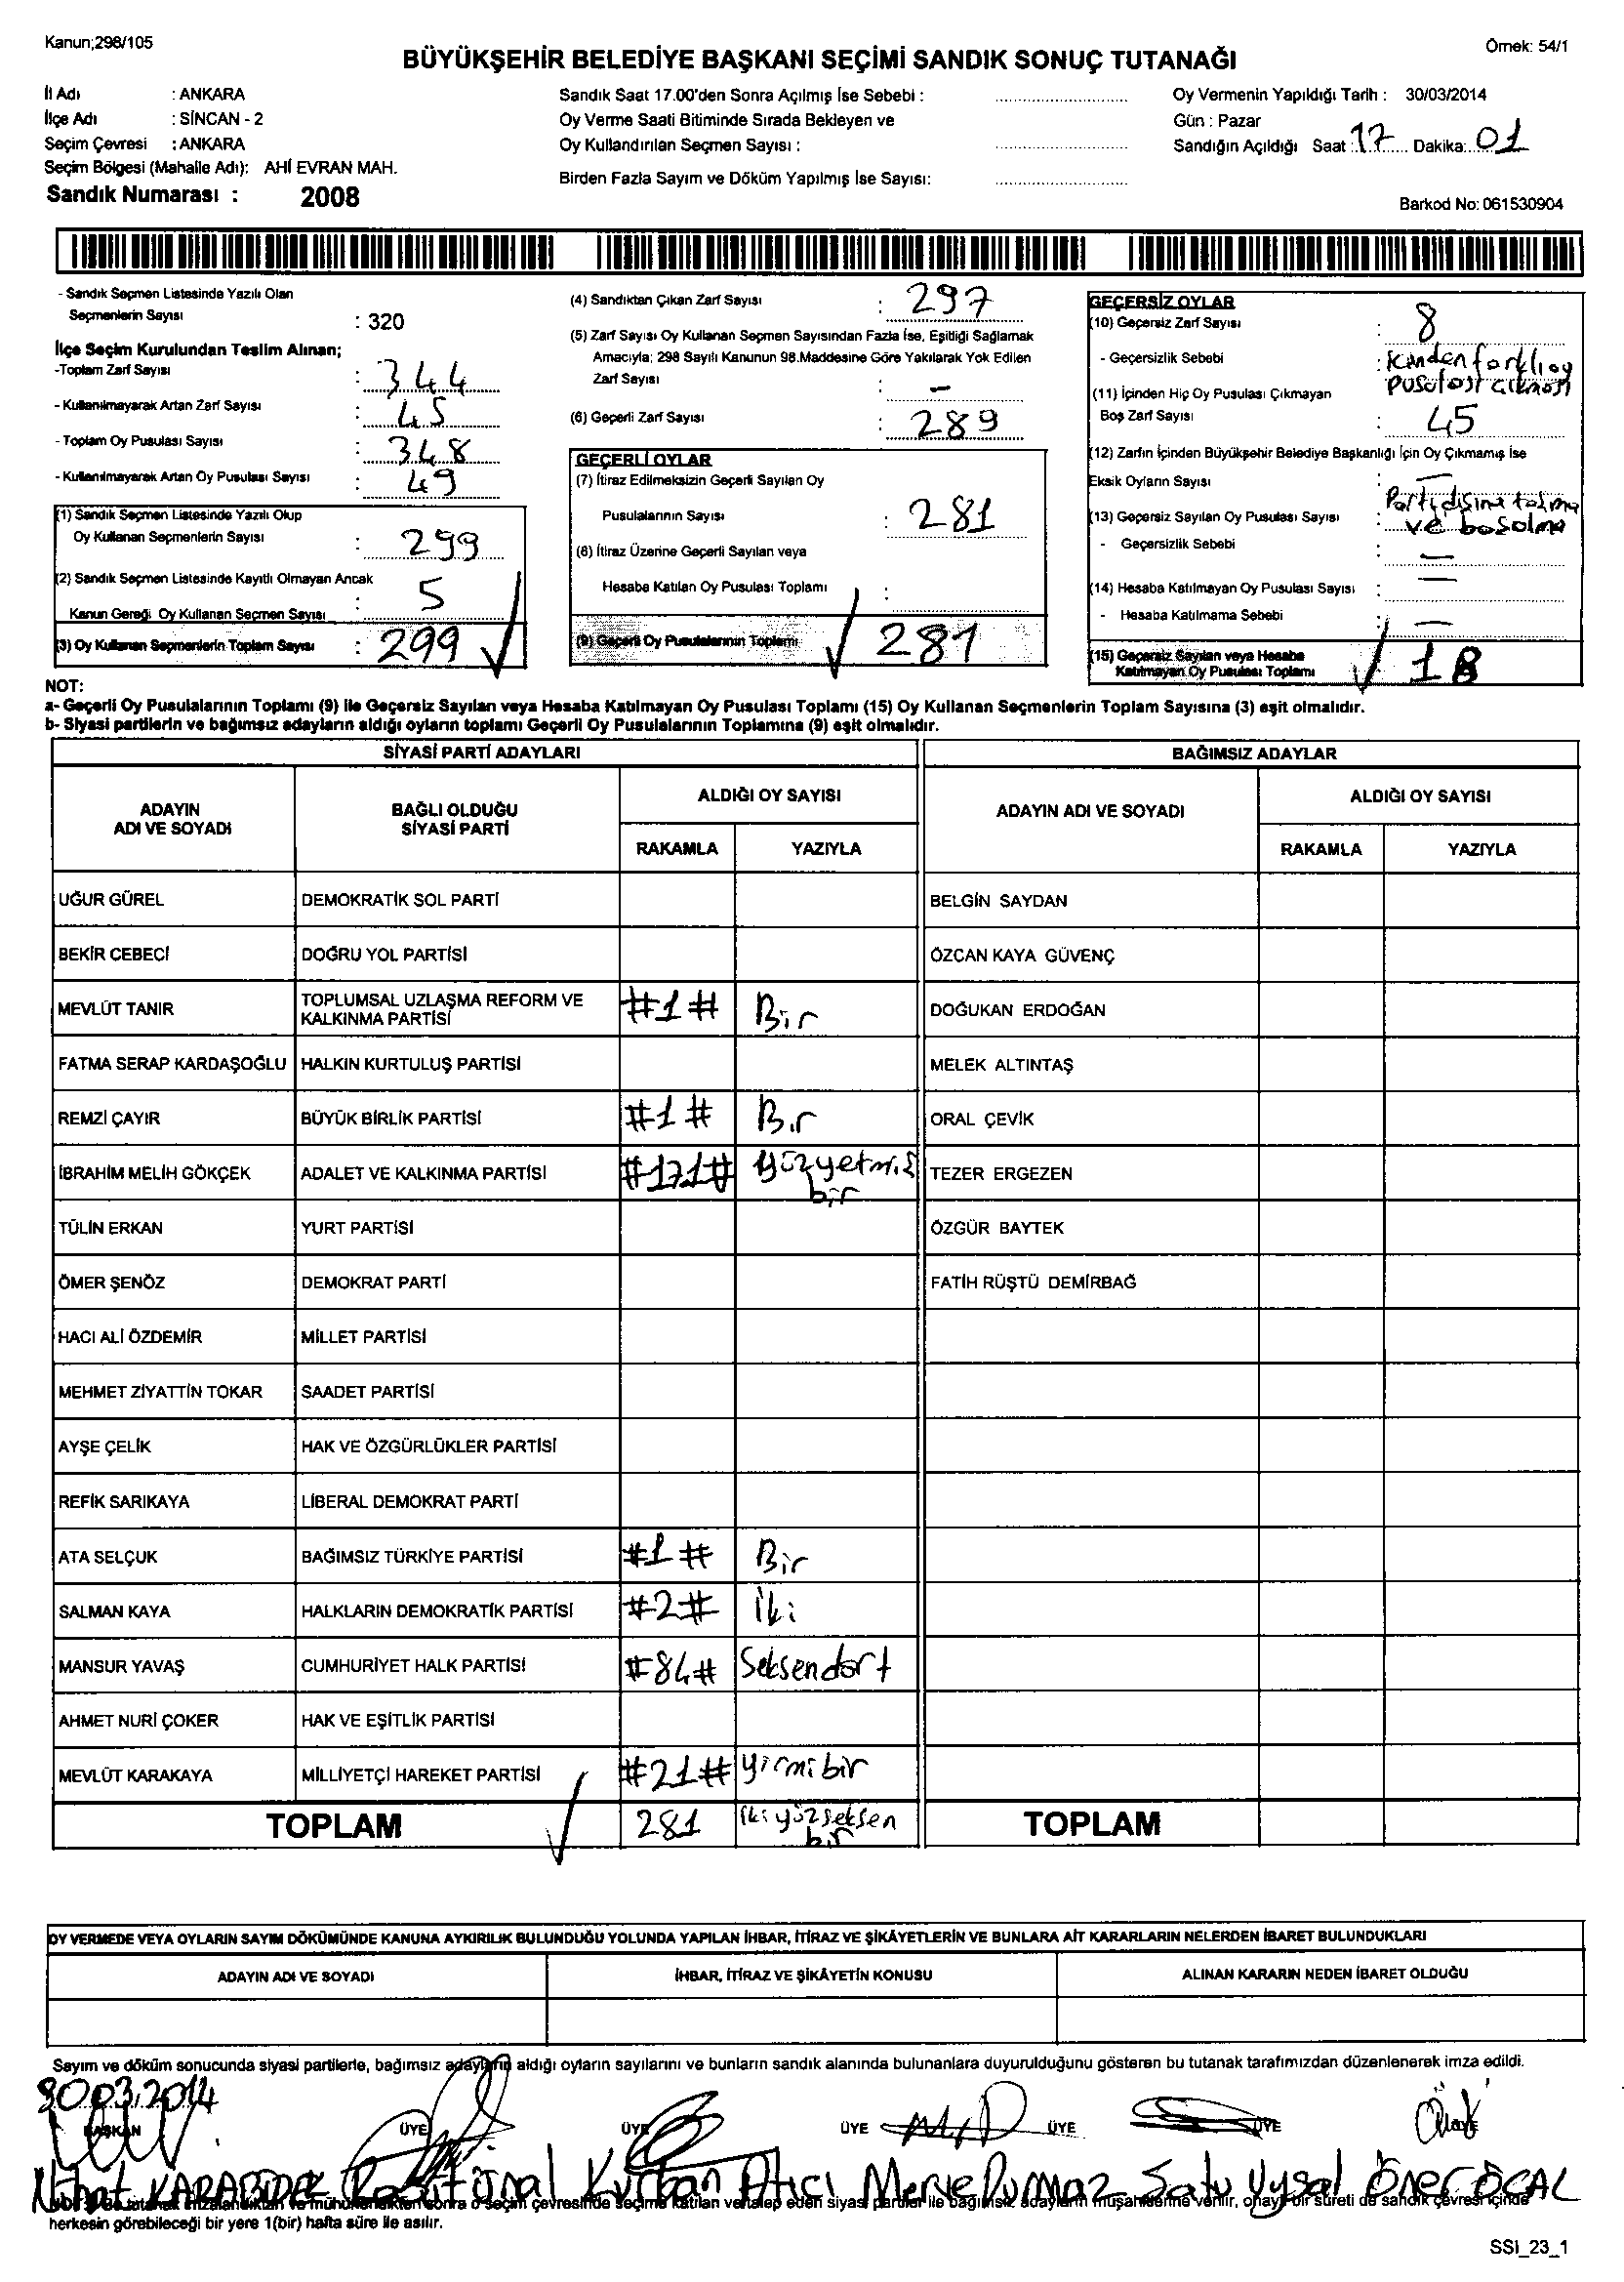 Kanun;298/105
Örnek: 54/1
BÜYÜKŞEHİR BELEDİYE BAŞKANI SEÇİMİ SANDIK SONUÇ TUTANAĞI
İl Adı : ANKARA
İlçe Adı : SİNCAN - 2
Seçim Çevresi : ANKARA
Seçim Bölgesi (Mahalle Adı): AHİ EVRAN MAH.
Sandık Numarası : 2008
Sandık Saat 17.00'den Sonra Açılmış İse Sebebi :
Oy Verme Saati Bitiminde Sırada Bekleyen ve
Oy Kullandırılan Seçmen Sayısı :
Birden Fazla Sayım ve Döküm Yapılmış İse Sayısı:
Oy Vermenin Yapıldığı Tarih : 30/03/2014
Gün : Pazar
Sandığın Açıldığı Saat : 17 Dakika: 01
Barkod No: 061530904
- Sandık Seçmen Listesinde Yazılı Olan
Seçmenlerin Sayısı : 320
İlçe Seçim Kurulundan Teslim Alınan;
-Toplam Zarf Sayısı : 344
- Kullanılmayarak Artan Zarf Sayısı : 45
- Toplam Oy Pusulası Sayısı : 348
- Kullanılmayarak Artan Oy Pusulası Sayısı : 49
(1) Sandık Seçmen Listesinde Yazılı Olup
Oy Kullanan Seçmenlerin Sayısı : 299
(2) Sandık Seçmen Listesinde Kayıtlı Olmayan Ancak
Kanun Gereği Oy Kullanan Seçmen Sayısı : 5
(3) Oy Kullanan Seçmenlerin Toplam Sayısı : 299
(4) Sandıktan Çıkan Zarf Sayısı : 297
(5) Zarf Sayısı Oy Kullanan Seçmen Sayısından Fazla İse, Eşitliği Sağlamak
Amacıyla; 298 Sayılı Kanunun 98.Maddesine Göre Yakılarak Yok Edilen
Zarf Sayısı : -
(6) Geçerli Zarf Sayısı : 289
GEÇERLİ OYLAR
(7) İtiraz Edilmeksizin Geçerli Sayılan Oy
Pusulalarının Sayısı : 281
(8) İtiraz Üzerine Geçerli Sayılan veya
Hesaba Katılan Oy Pusulası Toplamı :
(9) Geçerli Oy Pusulalarının Toplamı 281
GEÇERSİZ OYLAR
(10) Geçersiz Zarf Sayısı : 8
- Geçersizlik Sebebi : İcinden farklı oy
pusulası cıkması
(11) İçinden Hiç Oy Pusulası Çıkmayan
Boş Zarf Sayısı : 45
(12) Zarfın İçinden Büyükşehir Belediye Başkanlığı İçin Oy Çıkmamış İse
Eksik Oyların Sayısı : -
(13) Geçersiz Sayılan Oy Pusulası Sayısı : Parti dışına taşma
ve bosolma
- Geçersizlik Sebebi : -
(14) Hesaba Katılmayan Oy Pusulası Sayısı : -
- Hesaba Katılmama Sebebi : -
(15) Geçersiz Sayılan veya Hesaba
Katılmayan Oy Pusulası Toplamı 18
NOT:
a- Geçerli Oy Pusulalarının Toplamı (9) ile Geçersiz Sayılan veya Hesaba Katılmayan Oy Pusulası Toplamı (15) Oy Kullanan Seçmenlerin Toplam Sayısına (3) eşit olmalıdır.
b- Siyasi partilerin ve bağımsız adayların aldığı oyların toplamı Geçerli Oy Pusulalarının Toplamına (9) eşit olmalıdır.
SİYASİ PARTİ ADAYLARI
BAĞIMSIZ ADAYLAR
ADAYIN ADI VE SOYADI
BAĞLI OLDUĞU SİYASİ PARTİ
ALDIĞI OY SAYISI
RAKAMLA YAZIYLA
ADAYIN ADI VE SOYADI
ALDIĞI OY SAYISI
RAKAMLA YAZIYLA
UĞUR GÜREL DEMOKRATİK SOL PARTİ BELGİN SAYDAN
BEKİR CEBECİ DOĞRU YOL PARTİSİ ÖZCAN KAYA GÜVENÇ
MEVLÜT TANIR TOPLUMSAL UZLAŞMA REFORM VE KALKINMA PARTİSİ #1# Bir DOĞUKAN ERDOĞAN
FATMA SERAP KARDAŞOĞLU HALKIN KURTULUŞ PARTİSİ MELEK ALTINTAŞ
REMZİ ÇAYIR BÜYÜK BİRLİK PARTİSİ #1# Bir ORAL ÇEVİK
İBRAHİM MELİH GÖKÇEK ADALET VE KALKINMA PARTİSİ #171# yüzyetmiş bir TEZER ERGEZEN
TÜLİN ERKAN YURT PARTİSİ ÖZGÜR BAYTEK
ÖMER ŞENÖZ DEMOKRAT PARTİ FATİH RÜŞTÜ DEMİRBAĞ
HACI ALİ ÖZDEMİR MİLLET PARTİSİ
MEHMET ZİYATTİN TOKAR SAADET PARTİSİ
AYŞE ÇELİK HAK VE ÖZGÜRLÜKLER PARTİSİ
REFİK SARIKAYA LİBERAL DEMOKRAT PARTİ
ATA SELÇUK BAĞIMSIZ TÜRKİYE PARTİSİ #1# Bir
SALMAN KAYA HALKLARIN DEMOKRATİK PARTİSİ #2# İki
MANSUR YAVAŞ CUMHURİYET HALK PARTİSİ #84# Seksendört
AHMET NURİ ÇOKER HAK VE EŞİTLİK PARTİSİ
MEVLÜT KARAKAYA MİLLİYETÇİ HAREKET PARTİSİ #21# yirmibir
TOPLAM 281 ikiyüzseksen bir TOPLAM
OY VERMEDE VEYA OYLARIN SAYIM DÖKÜMÜNDE KANUNA AYKIRILIK BULUNDUĞU YOLUNDA YAPILAN İHBAR, İTİRAZ VE ŞİKÂYETLERİN VE BUNLARA AİT KARARLARIN NELERDEN İBARET BULUNDUKLARI
ADAYIN ADI VE SOYADI İHBAR, İTİRAZ VE ŞİKÂYETİN KONUSU ALINAN KARARIN NEDEN İBARET OLDUĞU
Sayım ve döküm sonucunda siyasi partilerle, bağımsız adayların aldığı oyların sayılarını ve bunların sandık alanında bulunanlara duyurulduğunu gösteren bu tutanak tarafımızdan düzenlenerek imza edildi.
30.03.2014
BAŞKAN ÜYE ÜYE ÜYE ÜYE ÜYE
Nihat Raşit Ünal Kurban Atıcı Merve Durmaz Satu Uysal Ömer ÖCAL
Bu tutanak imzalandıktan ve mühürlendikten sonra o seçim çevresinde seçime katılan ve talep eden siyasi partiler ile bağımsız adayların müşahitlerine verilir, onaylı bir sureti de sandık çevresi içinde
herkesin görebileceği bir yere 1(bir) hafta süre ile asılır.
SSI_23_1